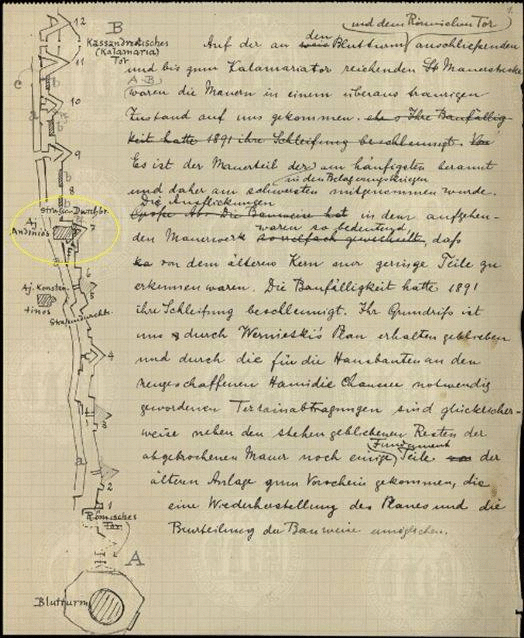 B
12
Kassandreotisches
(Kalamaria)
Tor
11
c
10
b
9
b
8
Straßen-Durchbr.
Aj.
Andonios
7
6
Aj. Konstan-
tinos
5
Straßendurchbr.
4
3
a
2
1
Römisches
Tor
A
Blutturm
und dem Römischen Tor
Auf der an den Blutturm anschließenden
und bis zum Kalamariator reichenden Mauerstrecke
A B
waren die Mauern in einem überaus traurigen
Zustand auf uns gekommen. Ihre Baufällig-
keit hatte 1891 ihre Schleifung beschleunigt.
Es ist der Mauerteil der am häufigsten berannt
in den Belagerungskriegen
und daher am schwersten mitgenommen wurde.
Die Ausflickungen
Die Bauweise hat in dem aufgehen-
waren so bedeutend
den Mauerwerk so vielfach gewechselt, daß
von dem älteren Kern nur geringe Teile zu
erkennen waren. Die Baufälligkeit hatte 1891
ihre Schleifung beschleunigt. Ihr Grundriß ist
uns durch Wernieski's Plan erhalten geblieben
und durch die für die Hausbauten an der
neugeschaffenen Hamidie Chaussee notwendig
gewordenen Terrainabtragungen sind glücklicher-
weise neben den stehen gebliebenen Resten der
Fundament
abgebrochenen Mauer noch einige Teile der
ältern Anlage zum Vorschein gekommen, die
eine Wiederherstellung des Planes und die
Beurteilung der Bauweise ermöglichen.